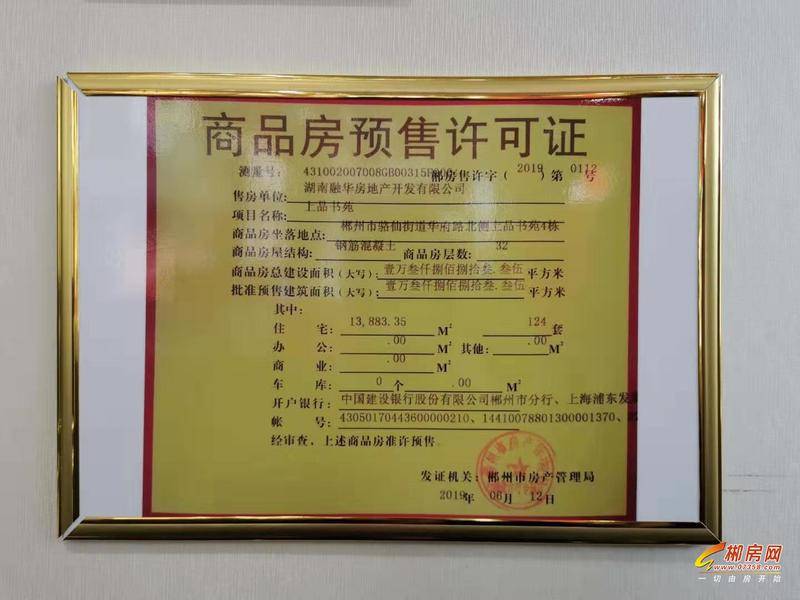 商品房预售许可证
测量号: 431002007008GB00315
郴房售许字( 2019 )第 0112 号
售房单位: 湖南融华房地产开发有限公司
项目名称: 上品书苑
商品房坐落地点: 郴州市骆仙街道华府路北侧上品书苑4栋
商品房屋结构: 钢筋混凝土 商品房层数: 32
商品房总建设面积(大写): 壹万叁仟捌佰捌拾叁.叁伍 平方米
批准预售建筑面积(大写): 壹万叁仟捌佰捌拾叁.叁伍 平方米
其中:
住 宅: 13,883.35 M² 124 套
办 公: .00 M² 其他: .00 M²
商 业: .00 M²
车 库: 0 个 .00 M²
开户银行: 中国建设银行股份有限公司郴州市分行、上海浦东发
帐 号: 43050170443600000210、14410078801300001370、
经审查,上述商品房准许预售。
发证机关: 郴州市房产管理局
2019年 06月 12日
郴房网
www.07358.com
一切由房开始